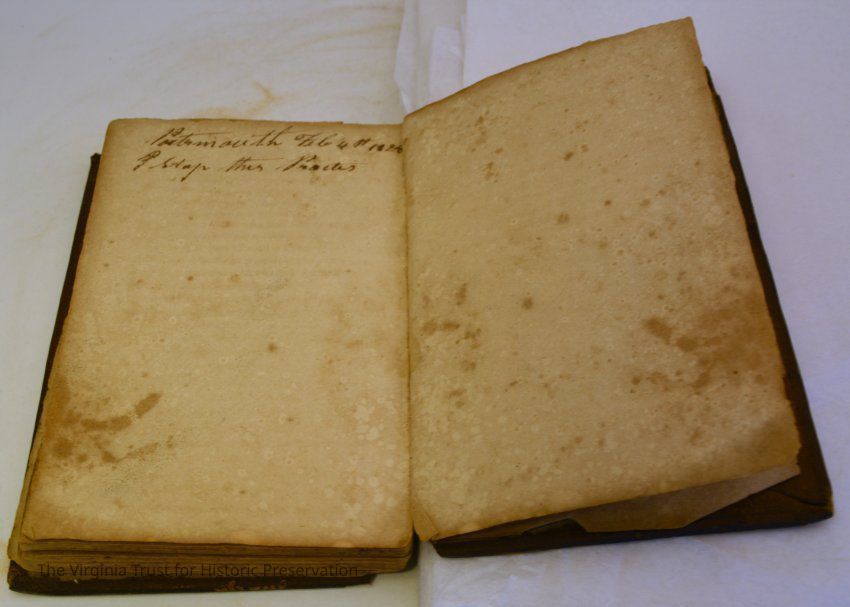 Portsmouth Feb 4th
I Stop this Practis
The Virginia Trust for Historic Preservation